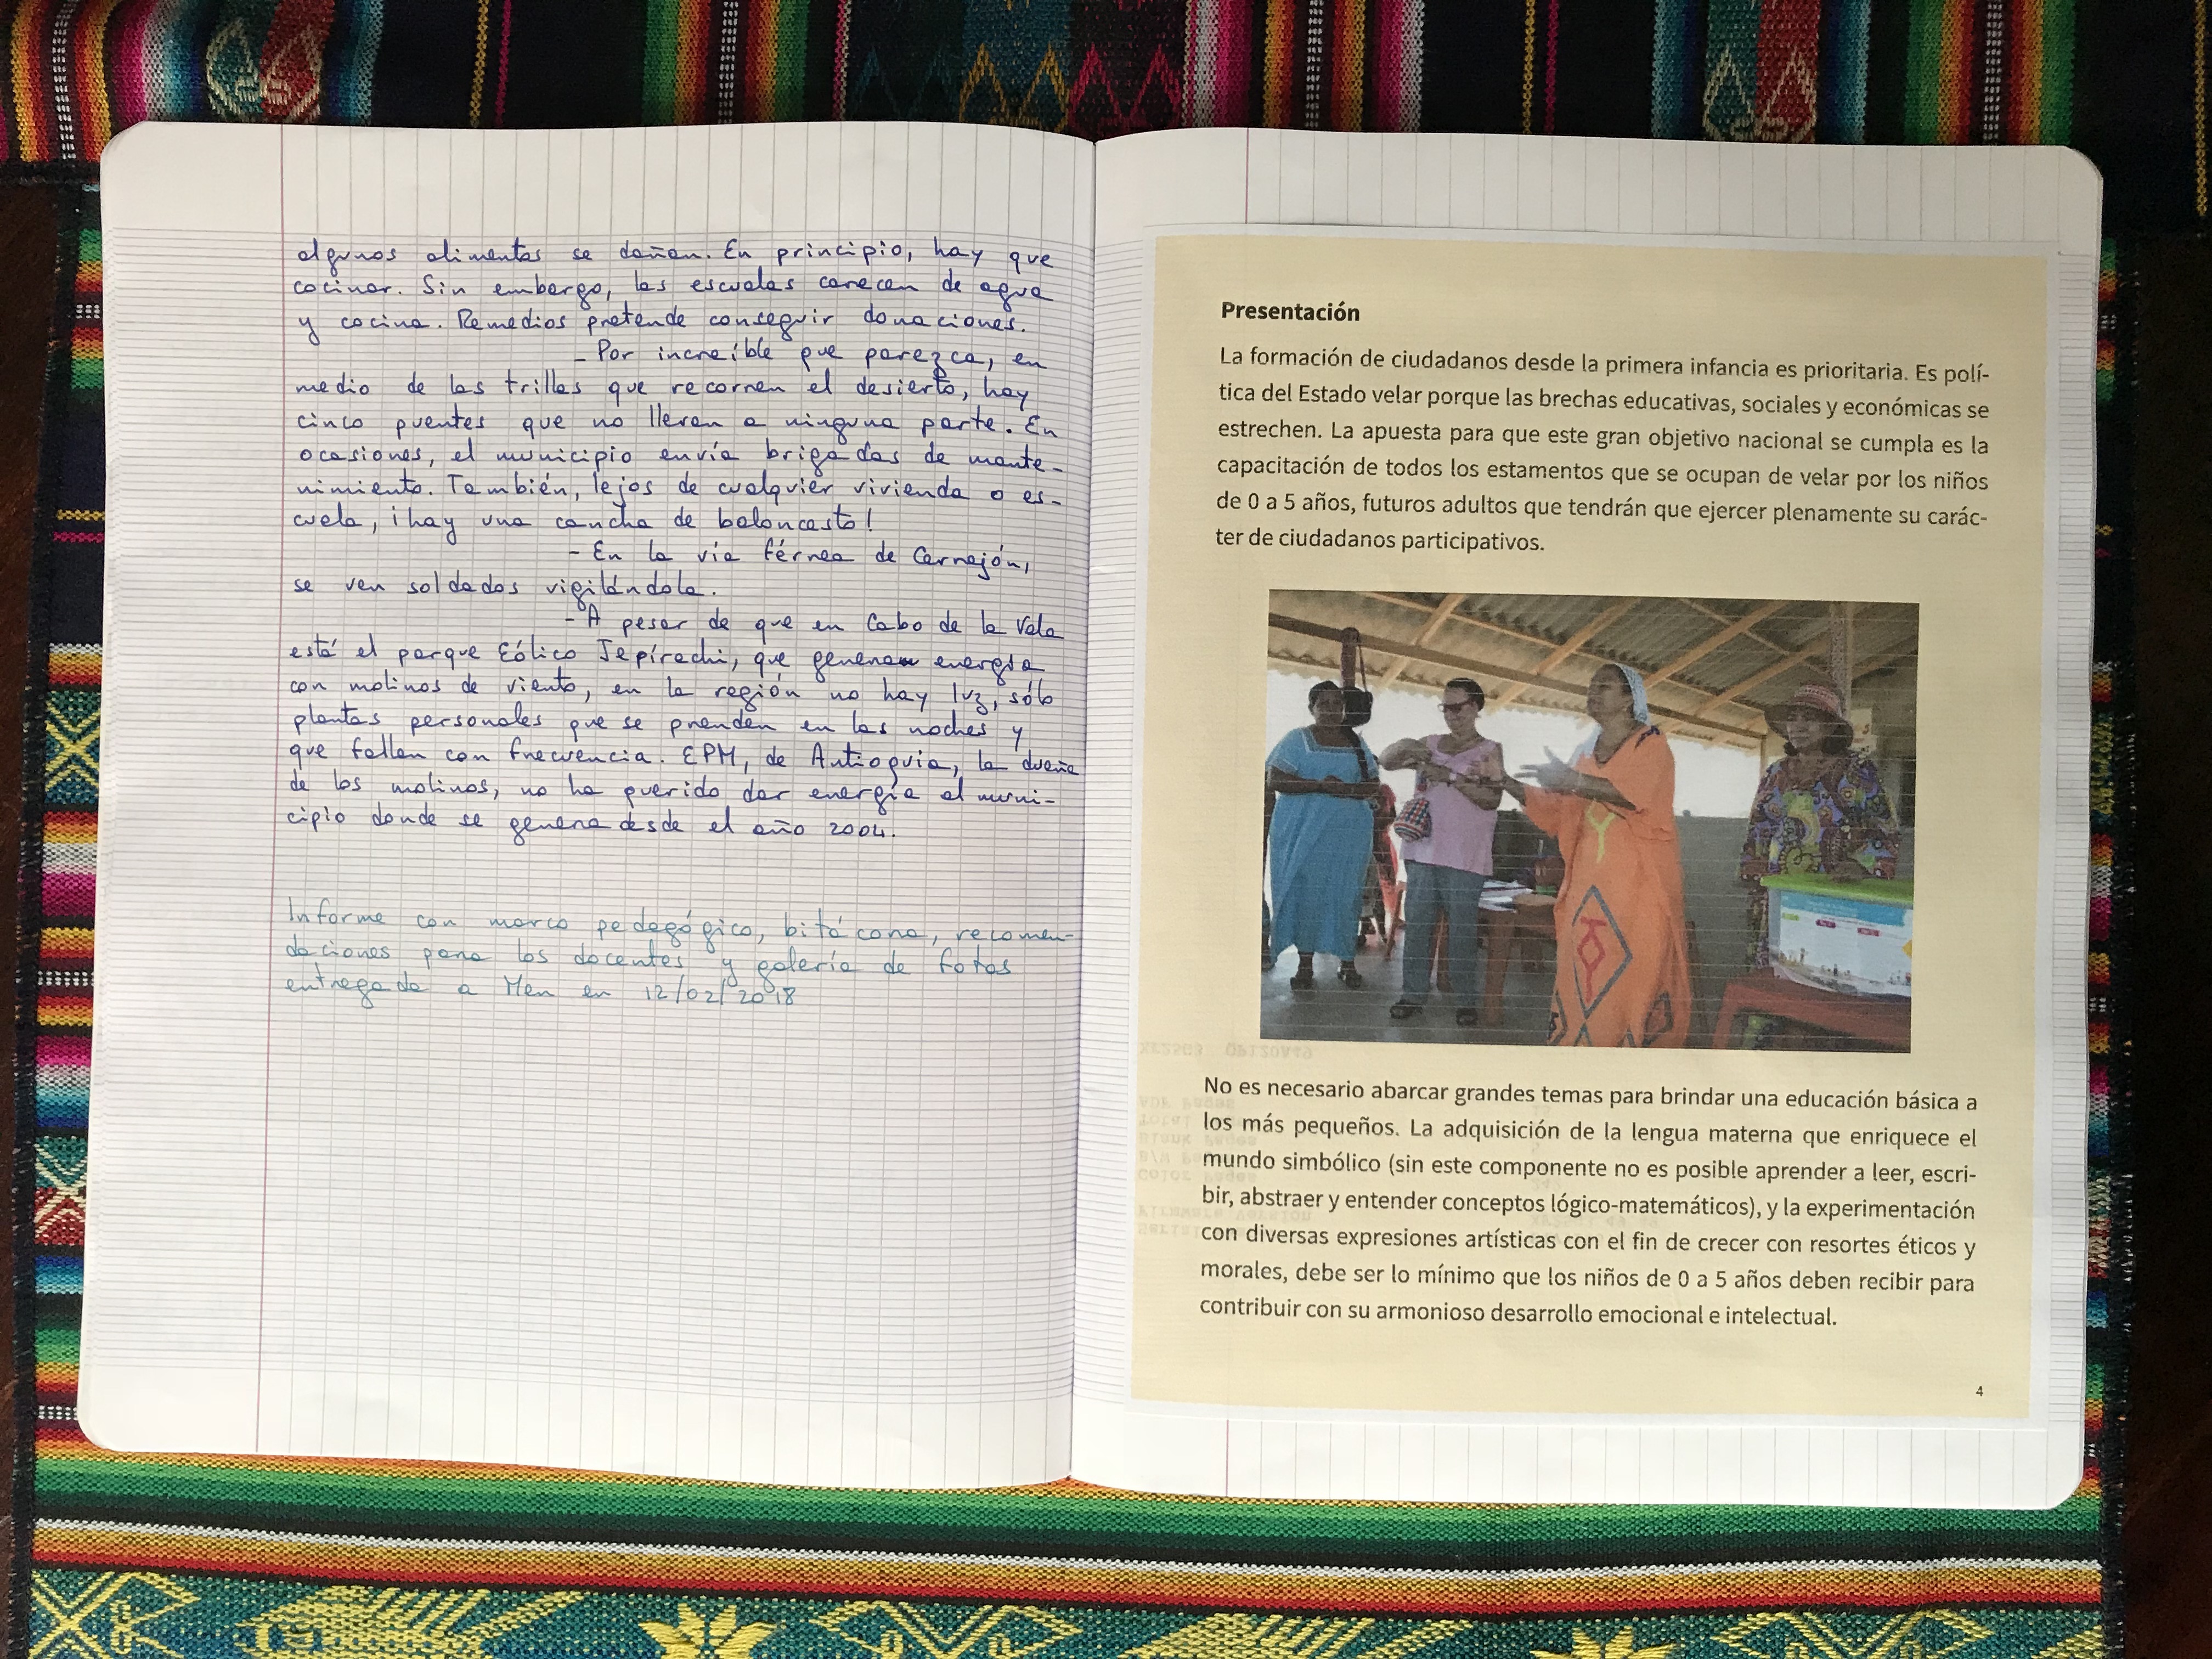 algunos alimentos se dañan. En principio, hay que
cocinar. Sin embargo, las escuelas carecen de agua
y cocina. Remedios pretende conseguir donaciones.
- Por increíble que parezca, en
medio de las trillas que recorren el desierto, hay
cinco puentes que no llevan a ninguna parte. En
ocasiones, el municipio envía brigadas de mante-
nimiento. También, lejos de cualquier vivienda o es-
cuela, ¡hay una cancha de baloncesto!
- En la vía férrea de Cerrejón,
se ven soldados vigilándola.
- A pesar de que en Cabo de la Vela
está el parque Eólico Jepírachi, que genera energía
con molinos de viento, en la región no hay luz, sólo
plantas personales que se prenden en las noches y
que fallan con frecuencia. EPM, de Antioquia, la dueña
de los molinos, no ha querido dar energía al muni-
cipio donde se genera desde el año 2004.
Informe con marco pedagógico, bitácora, recomen-
daciones para los docentes y galería de fotos
entregada a Men en 12/02/2018
Presentación
La formación de ciudadanos desde la primera infancia es prioritaria. Es polí-
tica del Estado velar porque las brechas educativas, sociales y económicas se
estrechen. La apuesta para que este gran objetivo nacional se cumpla es la
capacitación de todos los estamentos que se ocupan de velar por los niños
de 0 a 5 años, futuros adultos que tendrán que ejercer plenamente su carác-
ter de ciudadanos participativos.
No es necesario abarcar grandes temas para brindar una educación básica a
los más pequeños. La adquisición de la lengua materna que enriquece el
mundo simbólico (sin este componente no es posible aprender a leer, escri-
bir, abstraer y entender conceptos lógico-matemáticos), y la experimentación
con diversas expresiones artísticas con el fin de crecer con resortes éticos y
morales, debe ser lo mínimo que los niños de 0 a 5 años deben recibir para
contribuir con su armonioso desarrollo emocional e intelectual.
4